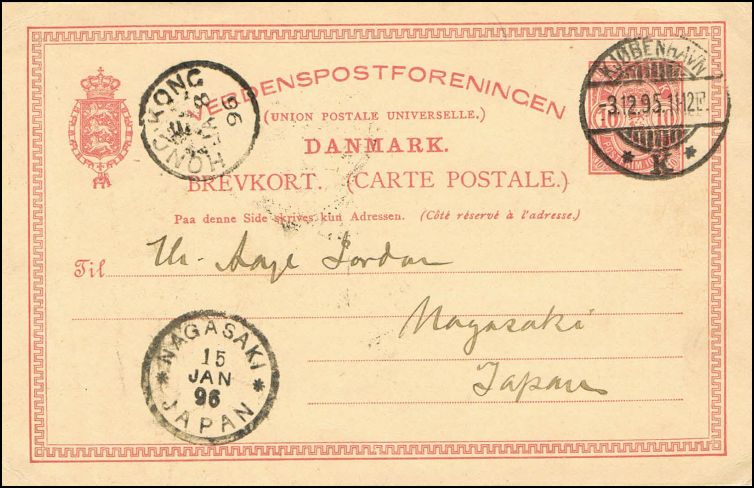 VERDENSPOSTFORENINGEN
(UNION POSTALE UNIVERSELLE.)
DANMARK.
BREVKORT. (CARTE POSTALE.)
Paa denne Side skrives kun Adressen. (Côté réservé à l'adresse.)
KJØBENHAVN
3.12.95.
K
HONG KONG
96
Til
Hr. Aage Jordan
Nagasaki
Japan
NAGASAKI
15
JAN
96
JAPAN